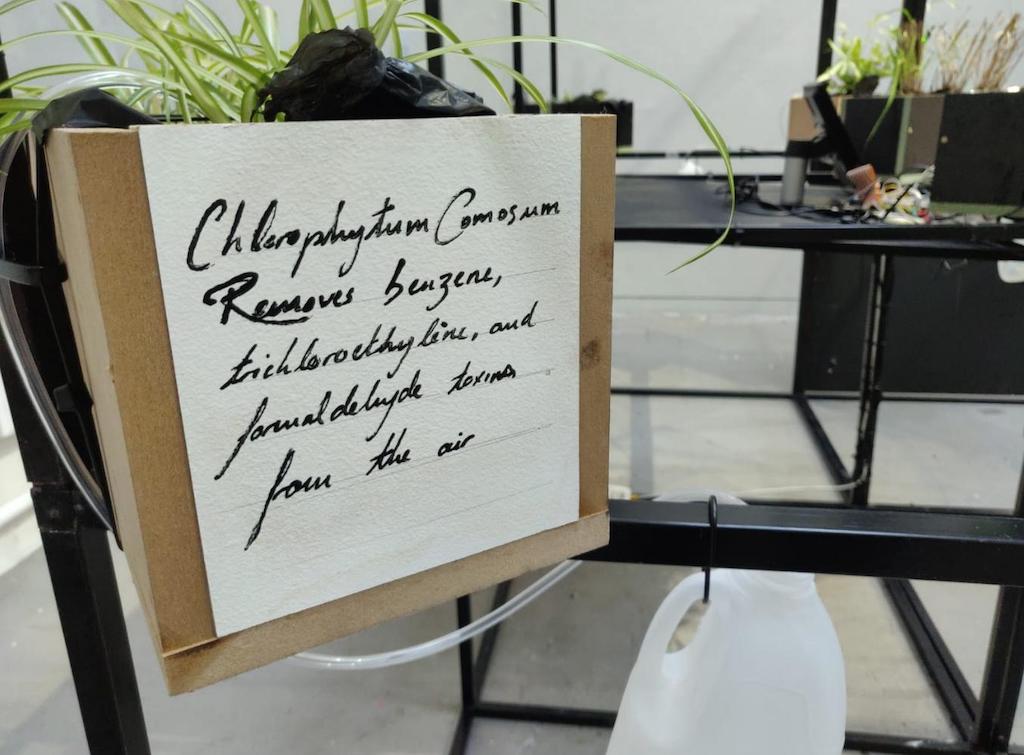 Chlorophytum Comosum
Removes benzene,
trichloroethyline, and
formaldehyde toxins
from the air